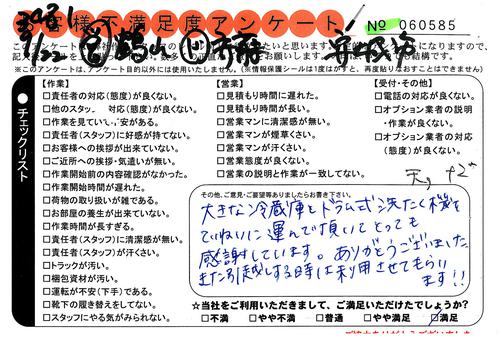 お客様不満足度アンケート
№ 060585
※このアンケートは、アンケート目的以外には使用いたしません。(※情報保護シールは1度はがすと、再度貼りなおすことはできません。)
チェックリスト
【作業】
□責任者の対応(態度)が良くない。
□他のスタッ、 対応(態度)が良くない。
□作業を見ていて、 安がある。
□責任者(スタッフ)に好感が持てない。
□お客様への挨拶が出来ていない。
□ご近所への挨拶・気遣いが無い。
□作業開始前の内容確認がなかった。
□作業開始時間が遅れた。
□荷物の取り扱いが雑である。
□お部屋の養生が出来ていない。
□作業時間が長すぎる。
□責任者(スタッフ)に清潔感が無い。
□責任者(スタッフ)が汗くさい。
□トラックが汚い。
□梱包資材が汚い。
□運転が不安(下手)である。
□靴下の履き替えをしてない。
□スタッフにやる気がみられない。
【営業】
□見積もり時間に遅れた。
□見積もり時間が長い。
□営業マンに清潔感が無い。
□営業マンが煙草くさい。
□営業マンが汗くさい。
□営業態度が良くない。
□営業の説明と作業が一致してない。
【受付・その他】
□電話の対応が良くない。
□オプション業者の説明
・作業が良くない。
□オプション業者の対応
(態度)が良くない。
その他、ご意見・ご要望等ありましたらお書き下さい。
大きな冷蔵庫とドラム式洗たく機を
ていねいに運んで頂いてとっても
感謝しています。ありがとうございました
また引越しする時は利用させてもらい
ます!!
☆当社をご利用いただきまして、ご満足いただけたでしょうか?
□不満 □やや不満 □普通 □やや満足 □満足